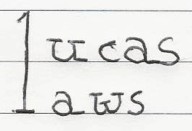 lucas
aws